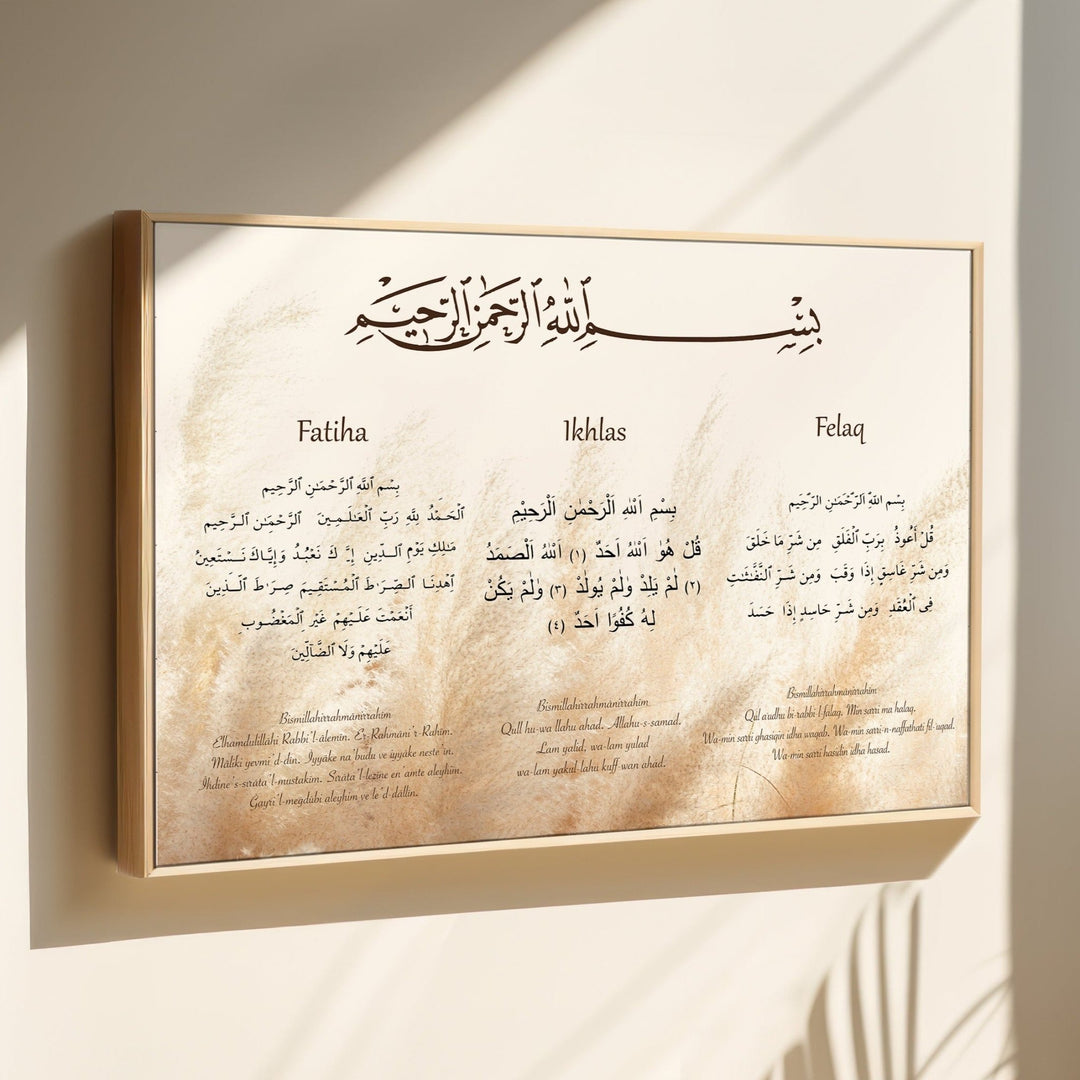 بِسْمِ ٱللّٰهِ ٱلرَّحْمٰنِ ٱلرَّحِيْمِ
Fatiha
بِسْمِ ٱللَّهِ ٱلرَّحْمَـٰنِ ٱلرَّحِيمِ
ٱلْحَمْدُ لِلَّهِ رَبِّ ٱلْعَـٰلَمِينَ ٱلرَّحْمَـٰنِ ٱلرَّحِيمِ
مَـٰلِكِ يَوْمِ ٱلدِّينِ إِيَّـكَ نَعْبُدُ وَإِيَّاكَ نَسْتَعِينُ
ٱهْدِنَا ٱلصِّرَٰطَ ٱلْمُسْتَقِيمَ صِرَٰطَ ٱلَّذِينَ
أَنْعَمْتَ عَلَيْهِمْ غَيْرِ ٱلْمَغْضُوبِ
عَلَيْهِمْ وَلَا ٱلضَّآلِّينَ
Bismillahirrahmânirrahim
Elhamdulillâhi Rabbi'l-âlemin. Er-Rahmâni'r-Rahim.
Mâliki yevmi'd-din. İyyâke na'budu ve iyyâke neste'in.
İhdine's-sırâta'l-mustakîm. Sırâta'l-lezîne en'amte aleyhim.
Gayri'l-megdûbi aleyhim ve le'd-dâllîn.
Ikhlas
بِسْمِ اَللهِ اَلْرَحْمٰنِ اَلْرَحِيْمِ
قُلْ هُوَ اَللهُ اَحَدٌ (١) اَللهُ اَلْصَمَدُ
(٢) لَمْ يَلِدْ وَلَمْ يُولَدْ (٣) وَلَمْ يَكُنْ
لَهُ كُفُوًا اَحَدٌ (٤)
Bismillahirrahmânirrahim
Qull hu-wa llahu ahad. Allahu-s-samad.
Lam yalid, wa-lam yulad
wa-lam yakul-lahu kuff-wan ahad.
Felaq
بِسْمِ اللَّهِ الرَّحْمَـٰنِ الرَّحِيمِ
قُلْ أَعُوذُ بِرَبِّ ٱلْفَلَقِ مِن شَرِّ مَا خَلَقَ
وَمِن شَرِّ غَاسِقٍ إِذَا وَقَبَ وَمِن شَرِّ ٱلنَّفَّـٰثَـٰتِ
فِى ٱلْعُقَدِ وَمِن شَرِّ حَاسِدٍ إِذَا حَسَدَ
Bismillahirrahmânirrahim
Qûl audhu bi-rabbi-l-falaq. Min sarri ma halaq.
Wa-min sarri ghasiqin idha waqab. Wa-min sarri-n-naffathati fil-uqad.
Wa-min sarri hasidin idha hasad.